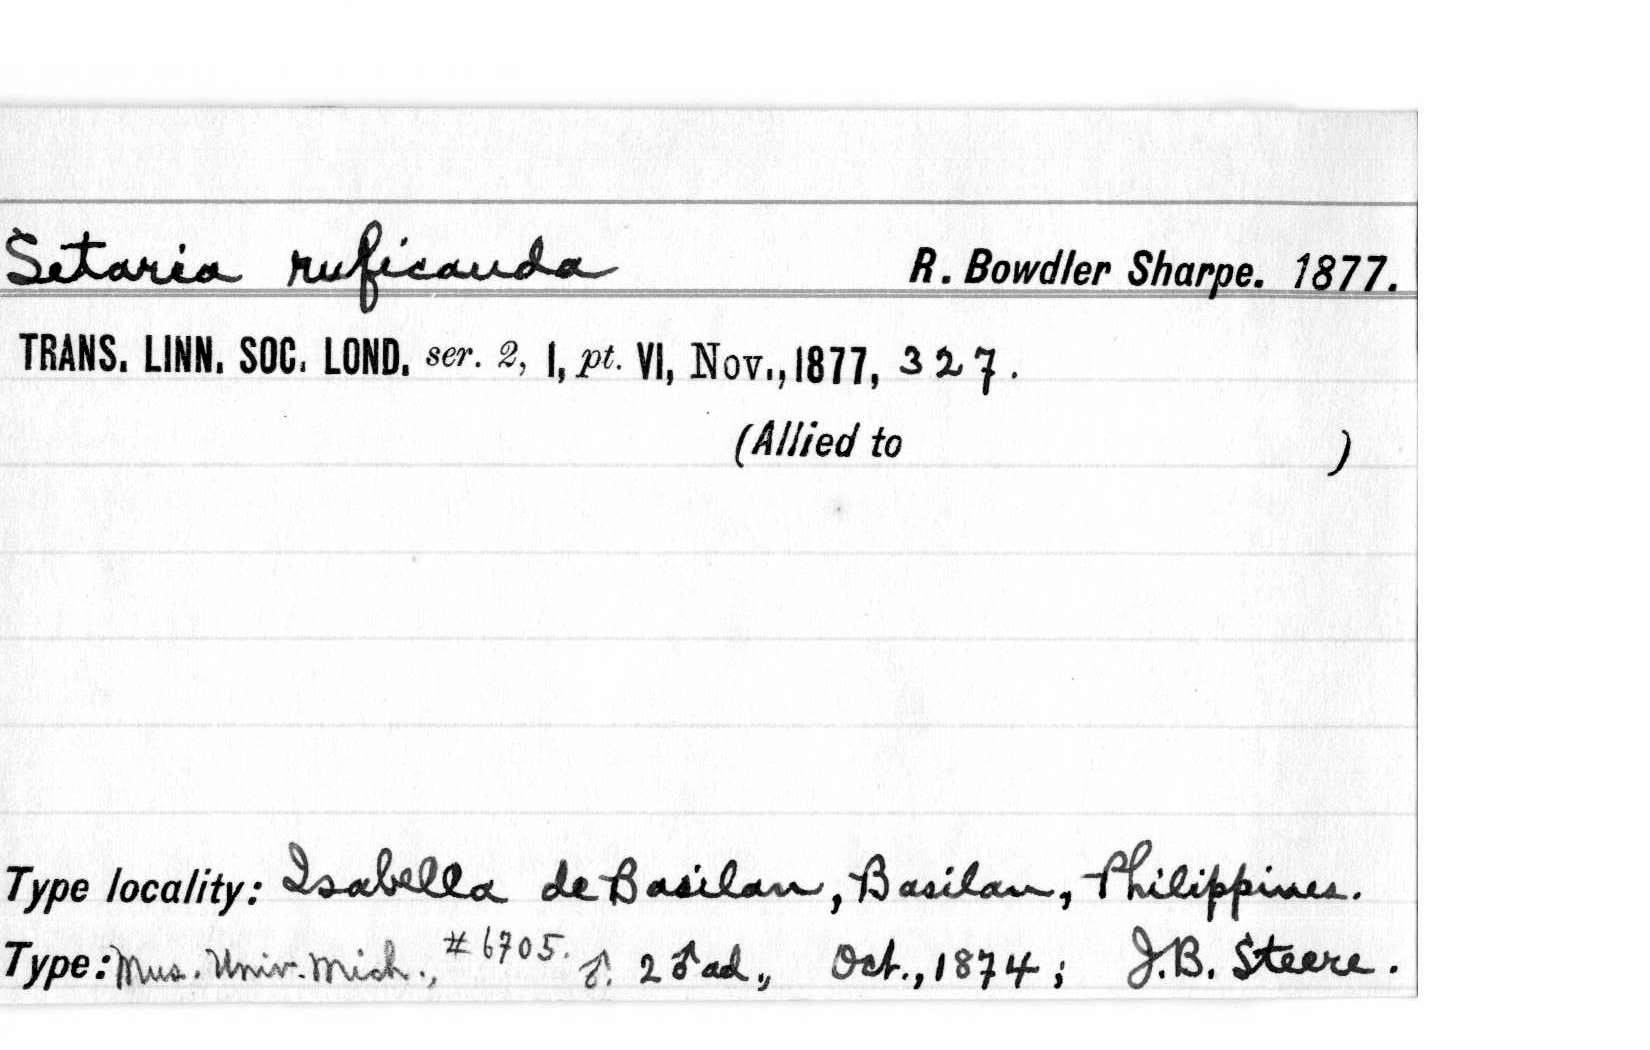 Setaria ruficauda R. Bowdler Sharpe. 1877.
TRANS. LINN. SOC. LOND. ser. 2, I, pt. VI, Nov., 1877, 327.
(Allied to )
Type locality: Isabella de Basilan, Basilan, Philippines.
Type: Mus. Univ. Mich., #6705. ♂. 2 ♂ ad., Oct., 1874; J.B. Steere.